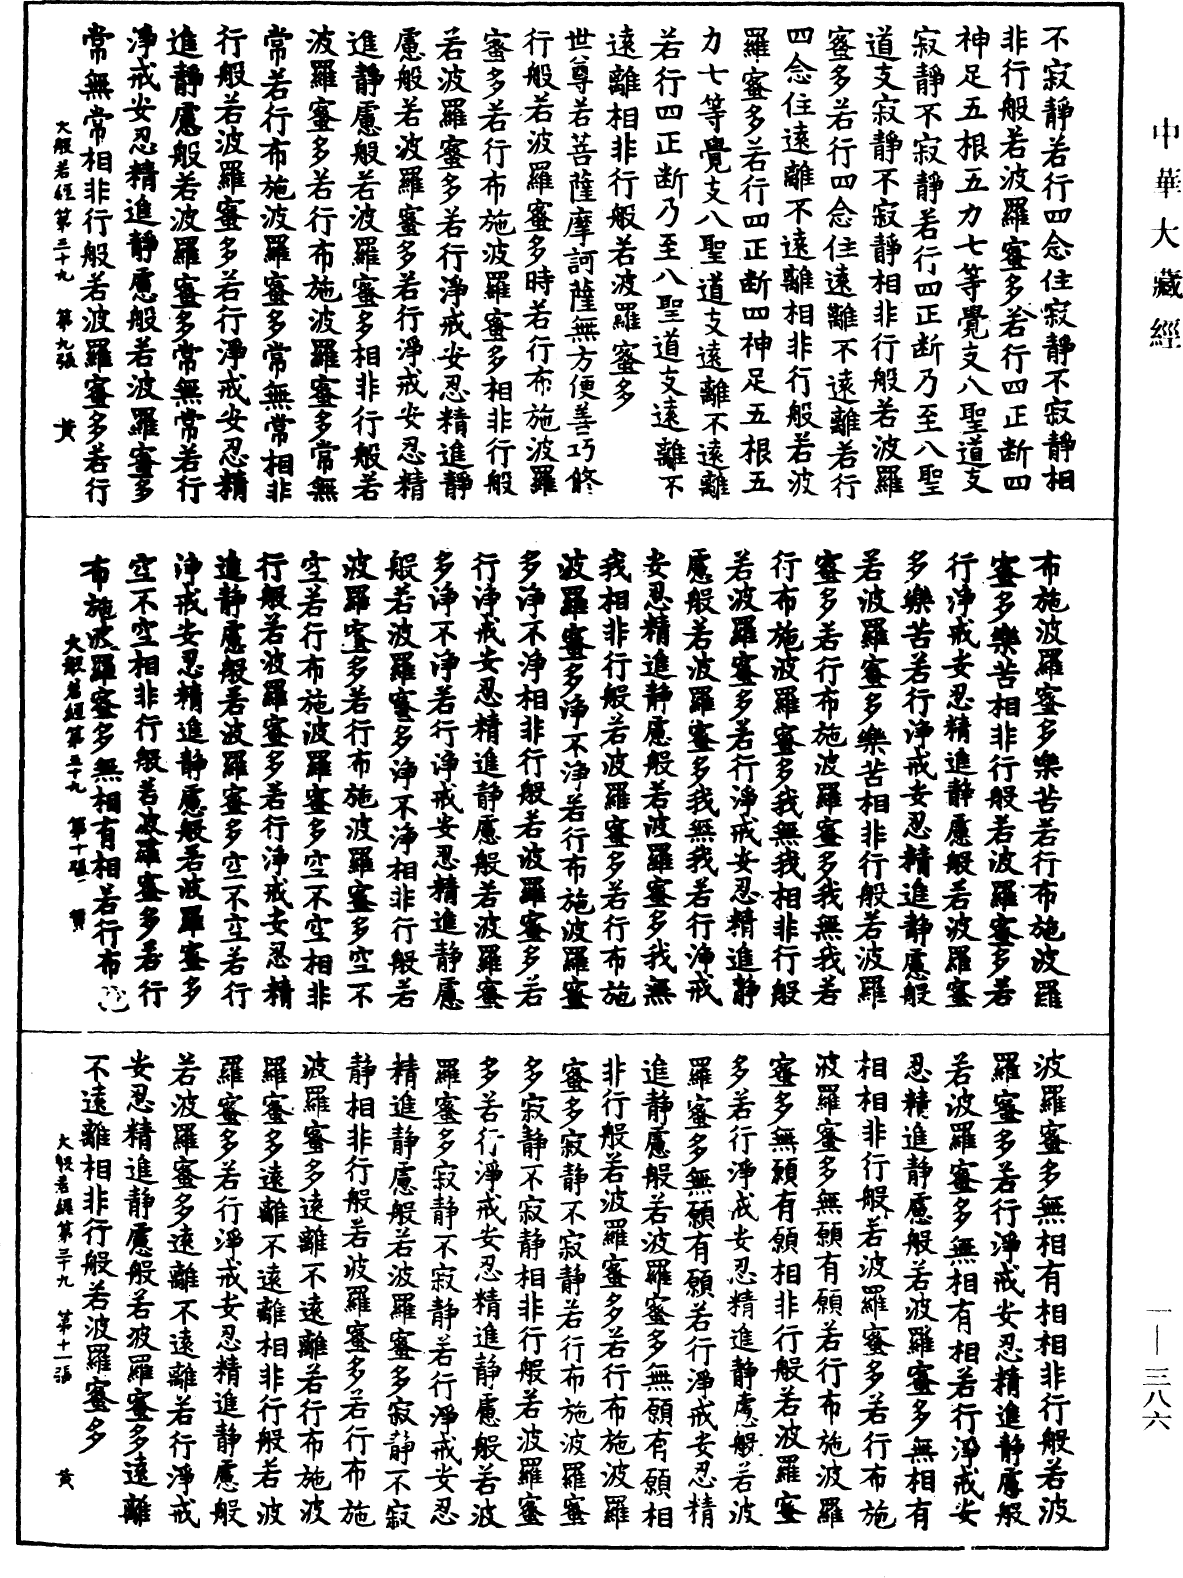 中華大藏經
不寂靜若行四念住寂靜不寂靜相
非行般若波羅蜜多若行四正斷四
神足五根五力七等覺支八聖道支
寂靜不寂靜若行四正斷乃至八聖
道支寂靜不寂靜相非行般若波羅
蜜多若行四念住遠離不遠離若行
四念住遠離不遠離相非行般若波
羅蜜多若行四正斷四神足五根五
力七等覺支八聖道支遠離不遠離
若行四正斷乃至八聖道支遠離不
遠離相非行般若波羅蜜多
世尊若菩薩摩訶薩無方便善巧修
行般若波羅蜜多時若行布施波羅
蜜多若行布施波羅蜜多相非行般
若波羅蜜多若行淨戒安忍精進靜
慮般若波羅蜜多若行淨戒安忍精
進靜慮般若波羅蜜多相非行般若
波羅蜜多若行布施波羅蜜多常無
常若行布施波羅蜜多常無常相非
行般若波羅蜜多若行淨戒安忍精
進靜慮般若波羅蜜多常無常若行
淨戒安忍精進靜慮般若波羅蜜多
常無常相非行般若波羅蜜多若行
大般若經第三十九 第九張 黃
布施波羅蜜多樂苦若行布施波羅
蜜多樂苦相非行般若波羅蜜多若
行淨戒安忍精進靜慮般若波羅蜜
多樂苦若行淨戒安忍精進靜慮般
若波羅蜜多樂苦相非行般若波羅
蜜多若行布施波羅蜜多我無我若
行布施波羅蜜多我無我相非行般
若波羅蜜多若行淨戒安忍精進靜
慮般若波羅蜜多我無我若行淨戒
安忍精進靜慮般若波羅蜜多我無
我相非行般若波羅蜜多若行布施
波羅蜜多淨不淨若行布施波羅蜜
多淨不淨相非行般若波羅蜜多若
行淨戒安忍精進靜慮般若波羅蜜
多淨不淨若行淨戒安忍精進靜慮
般若波羅蜜多淨不淨相非行般若
波羅蜜多若行布施波羅蜜多空不
空若行布施波羅蜜多空不空相非
行般若波羅蜜多若行淨戒安忍精
進靜慮般若波羅蜜多空不空若行
淨戒安忍精進靜慮般若波羅蜜多
空不空相非行般若波羅蜜多若行
布施波羅蜜多無相有相若行布施
大般若經第三十九 第十張 黃
波羅蜜多無相有相相非行般若波
羅蜜多若行淨戒安忍精進靜慮般
若波羅蜜多無相有相若行淨戒安
忍精進靜慮般若波羅蜜多無相有
相相非行般若波羅蜜多若行布施
波羅蜜多無願有願若行布施波羅
蜜多無願有願相非行般若波羅蜜
多若行淨戒安忍精進靜慮般若波
羅蜜多無願有願若行淨戒安忍精
進靜慮般若波羅蜜多無願有願相
非行般若波羅蜜多若行布施波羅
蜜多寂靜不寂靜若行布施波羅蜜
多寂靜不寂靜相非行般若波羅蜜
多若行淨戒安忍精進靜慮般若波
羅蜜多寂靜不寂靜若行淨戒安忍
精進靜慮般若波羅蜜多寂靜不寂
靜相非行般若波羅蜜多若行布施
波羅蜜多遠離不遠離若行布施波
羅蜜多遠離不遠離相非行般若波
羅蜜多若行淨戒安忍精進靜慮般
若波羅蜜多遠離不遠離若行淨戒
安忍精進靜慮般若波羅蜜多遠離
不遠離相非行般若波羅蜜多
大般若經第三十九 第十一張 黃
一—三八六